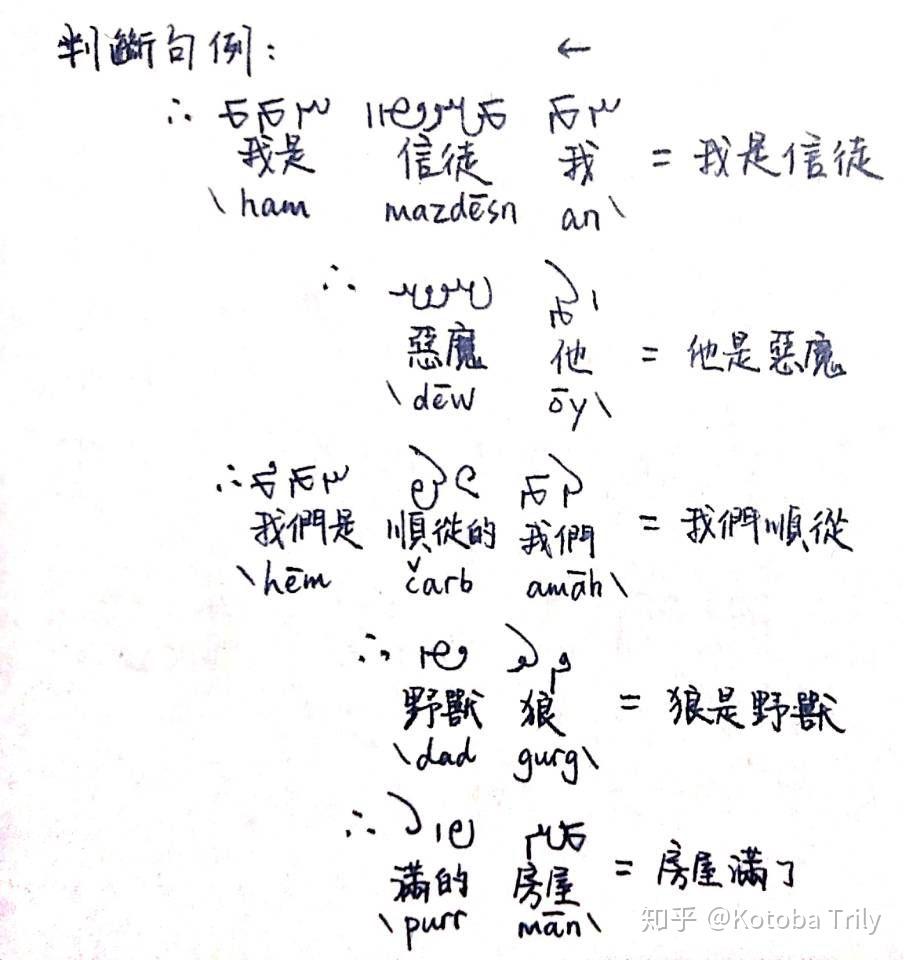 判斷句例: ←
∴
我是 信徒 我 = 我是信徒
\ham mazdēsn an\
∴
惡魔 他 = 他是惡魔
\dēw ōy\
∴
我們是 順從的 我們 = 我們順從
\hēm čarb amāh\
∴
野獸 狼 = 狼是野獸
\dad gurg\
∴
滿的 房屋 = 房屋滿了
\purr mān\
知乎 @Kotoba Trily